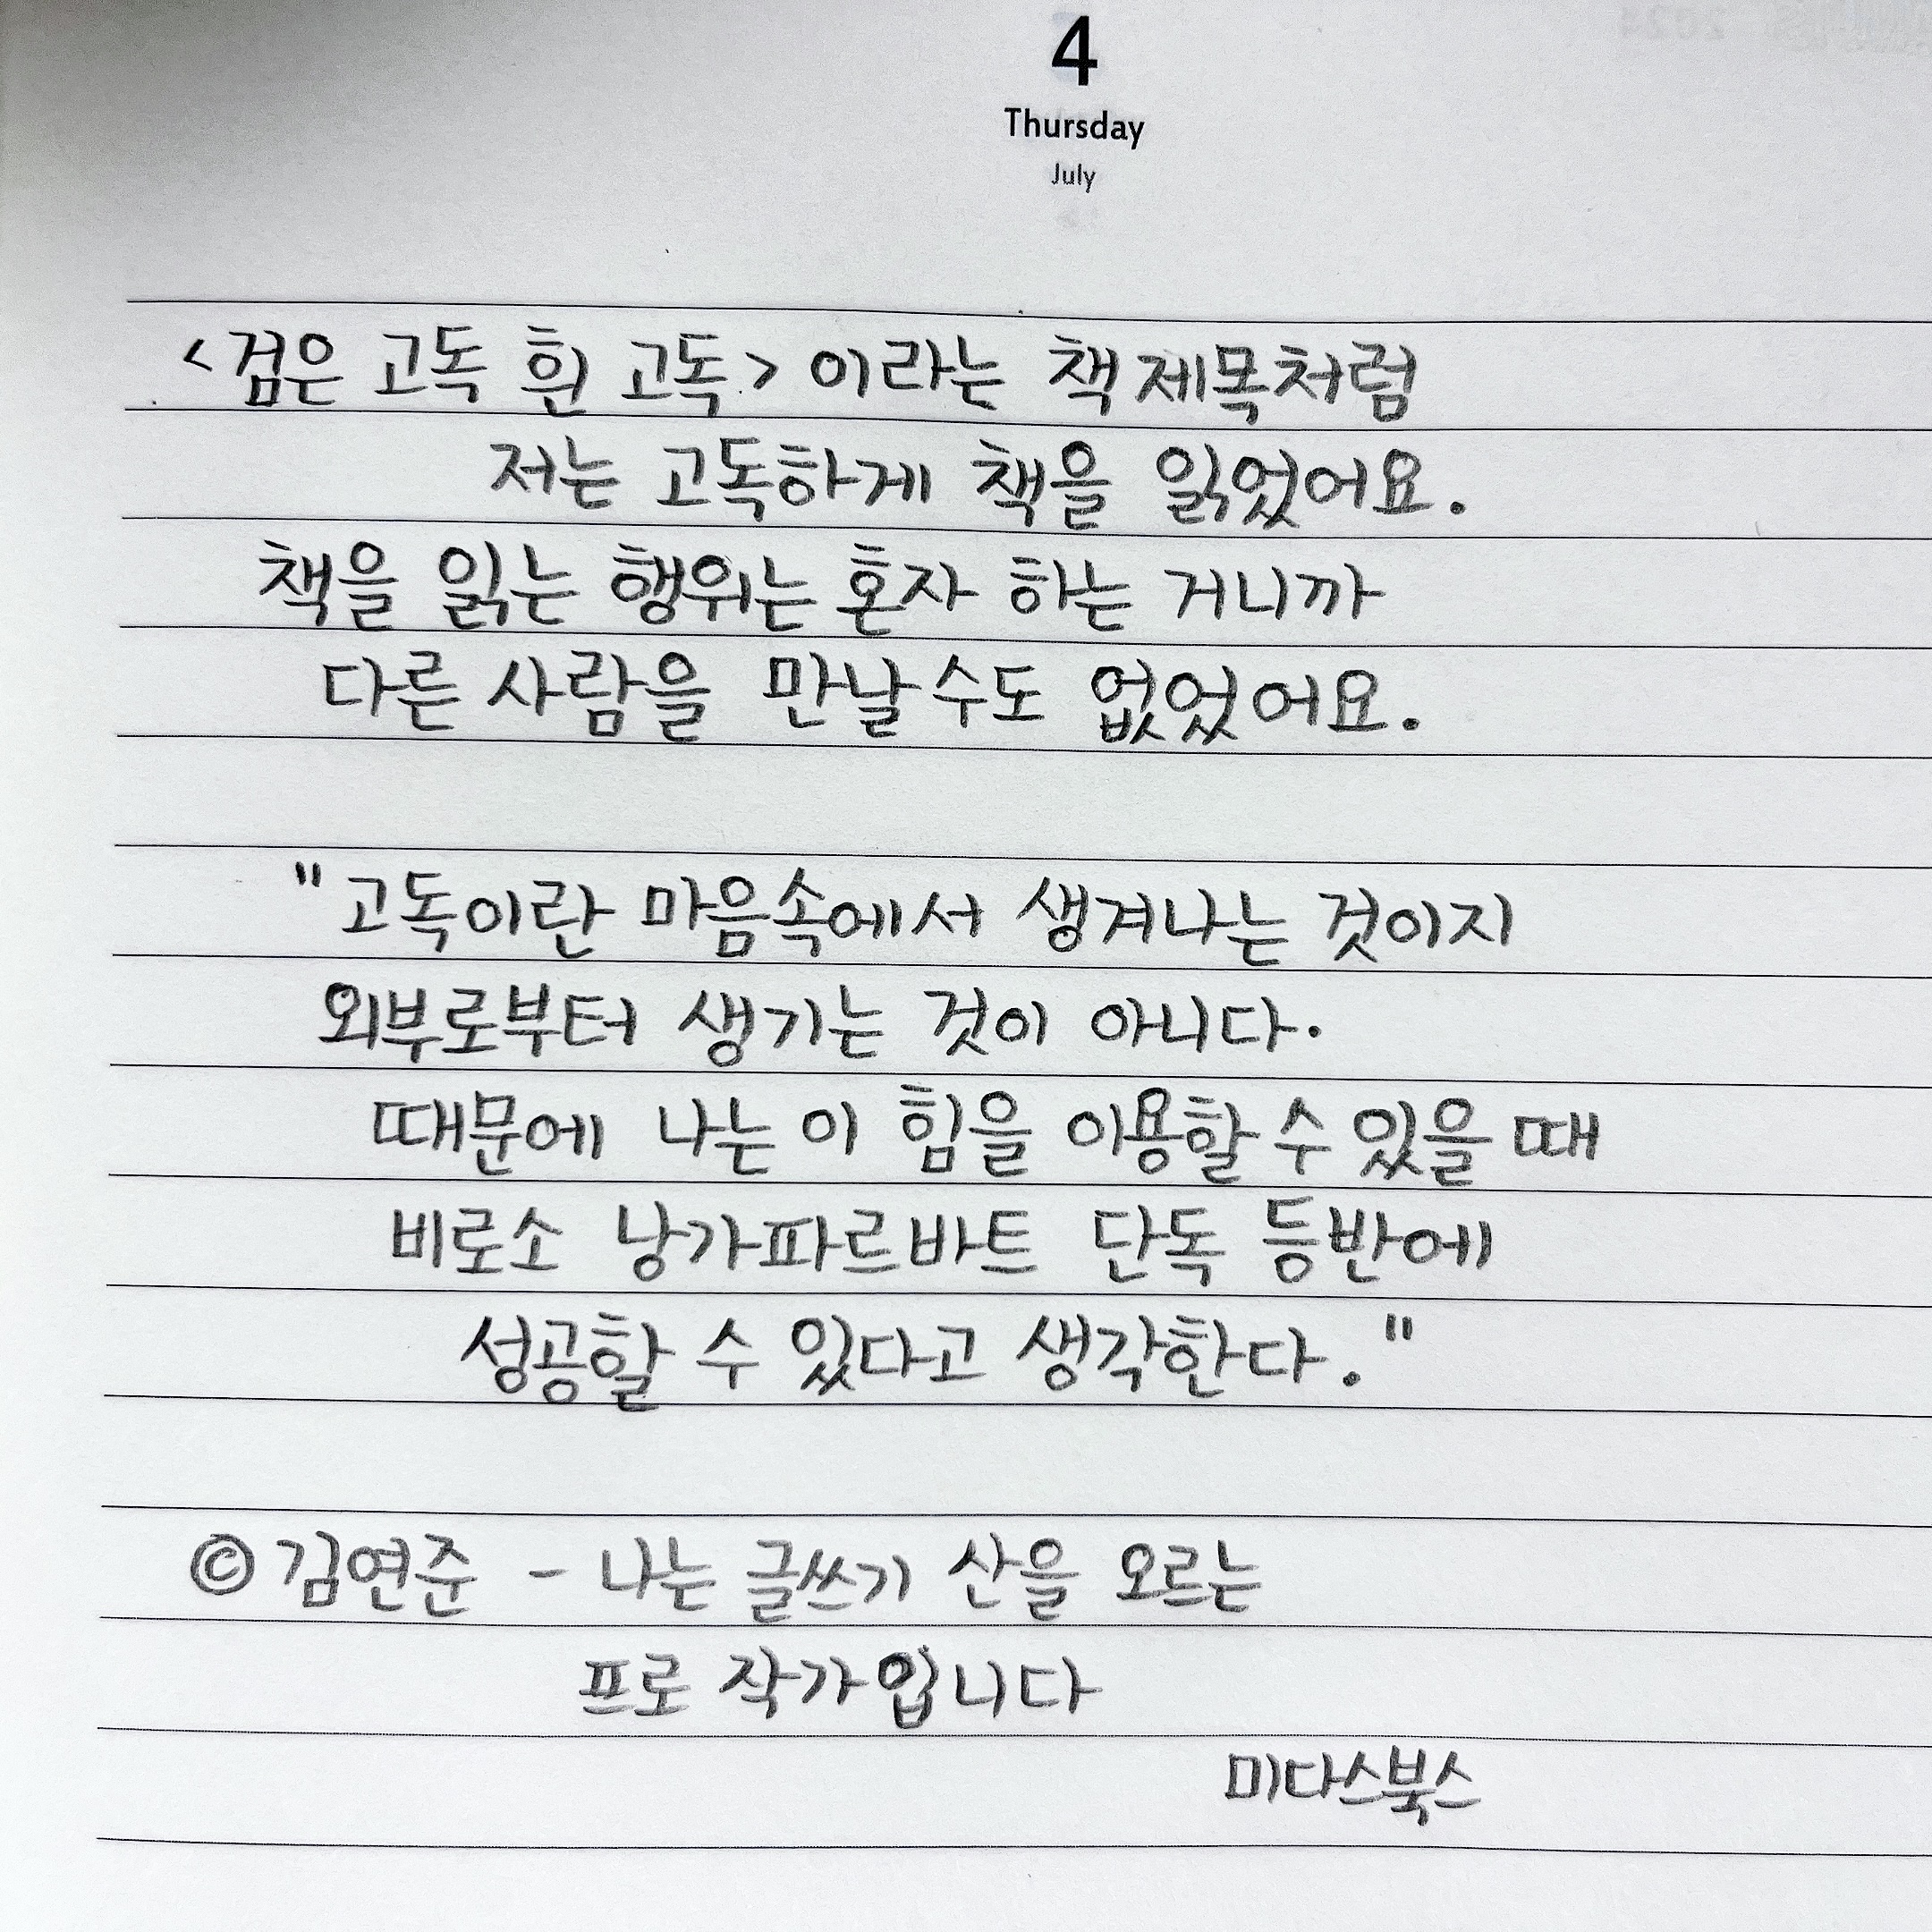 4
Thursday
July
<검은 고독 흰 고독> 이라는 책 제목처럼
저는 고독하게 책을 읽었어요.
책을 읽는 행위는 혼자 하는 거니까
다른 사람을 만날 수도 없었어요.
"고독이란 마음속에서 생겨나는 것이지
외부로부터 생기는 것이 아니다.
때문에 나는 이 힘을 이용할 수 있을 때
비로소 낭가파르바트 단독 등반에
성공할 수 있다고 생각한다."
© 김연준 - 나는 글쓰기 산을 오르는
프로 작가입니다
미다스북스